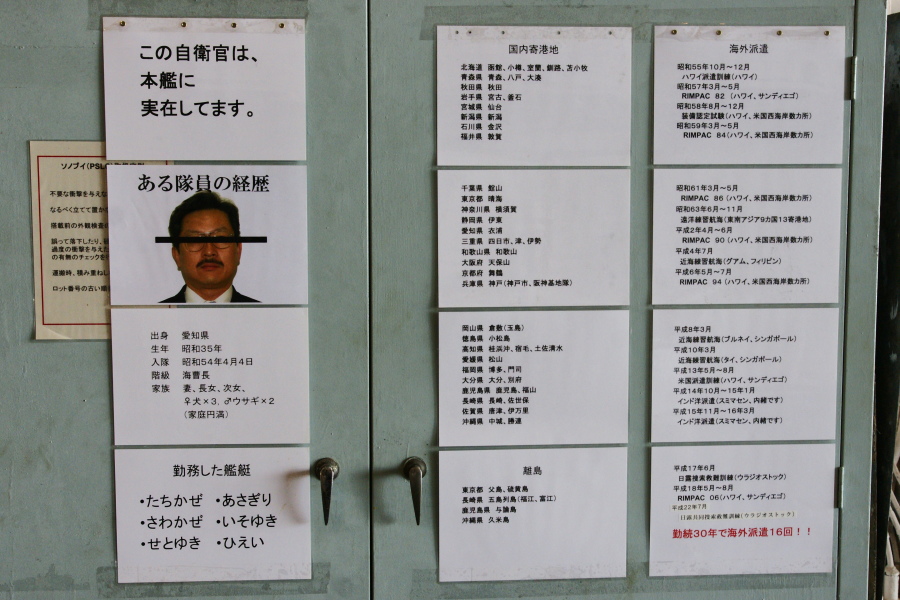 この自衛官は、
本艦に
実在してます。
ソノブイ(PSL
不要な衝撃を与えな
なるべく立てて置か
搭載前の外観検査の
誤って落下したり、
過度の衝撃を与えた
の有無のチェックを
運搬時、積み重ねし
ロット番号の古い順
ある隊員の経歴
出身 愛知県
生年 昭和35年
入隊 昭和54年4月4日
階級 海曹長
家族 妻、長女、次女、
♀犬×3、♂ウサギ×2
(家庭円満)
勤務した艦艇
・たちかぜ ・あさぎり
・さわかぜ ・いそゆき
・せとゆき ・ひえい
国内寄港地
北海道 函館、小樽、室蘭、釧路、苫小牧
青森県 青森、八戸、大湊
秋田県 秋田
岩手県 宮古、釜石
宮城県 仙台
新潟県 新潟
石川県 金沢
福井県 敦賀
千葉県 館山
東京都 晴海
神奈川県 横須賀
静岡県 伊東
愛知県 衣浦
三重県 四日市、津、伊勢
和歌山県 和歌山
大阪府 天保山
京都府 舞鶴
兵庫県 神戸(神戸市、阪神基地隊)
岡山県 倉敷(玉島)
徳島県 小松島
高知県 桂浜沖、宿毛、土佐清水
愛媛県 松山
福岡県 博多、門司
大分県 大分、別府
鹿児島県 鹿児島、福山
長崎県 長崎、佐世保
佐賀県 唐津、伊万里
沖縄県 中城、勝連
離島
東京都 父島、硫黄島
長崎県 五島列島(福江、富江)
鹿児島県 与論島
沖縄県 久米島
海外派遣
昭和55年10月～12月
ハワイ派遣訓練(ハワイ)
昭和57年3月～5月
RIMPAC 82 (ハワイ、サンディエゴ)
昭和58年8月～12月
装備認定試験(ハワイ、米国西海岸数カ所)
昭和59年3月～5月
RIMPAC 84(ハワイ、米国西海岸数カ所)
昭和61年3月～5月
RIMPAC 86(ハワイ、米国西海岸数カ所)
昭和63年6月～11月
遠洋練習航海(東南アジア9カ国13寄港地)
平成2年4月～6月
RIMPAC 90(ハワイ、米国西海岸数カ所)
平成4年7月
近海練習航海(グアム、フィリピン)
平成6年5月～7月
RIMPAC 94(ハワイ、米国西海岸数カ所)
平成8年3月
近海練習航海(ブルネイ、シンガポール)
平成10年3月
近海練習航海(タイ、シンガポール)
平成13年5月～8月
米国派遣訓練(ハワイ、サンディエゴ)
平成14年10月～15年1月
インド洋派遣(スミマセン、内緒です)
平成15年11月～16年3月
インド洋派遣(スミマセン、内緒です)
平成17年6月
日露捜索救難訓練(ウラジオストック)
平成18年5月～8月
RIMPAC 06(ハワイ、サンディエゴ)
平成22年7月
日露共同捜索救難訓練(ウラジオストック)
勤続30年で海外派遣16回!!